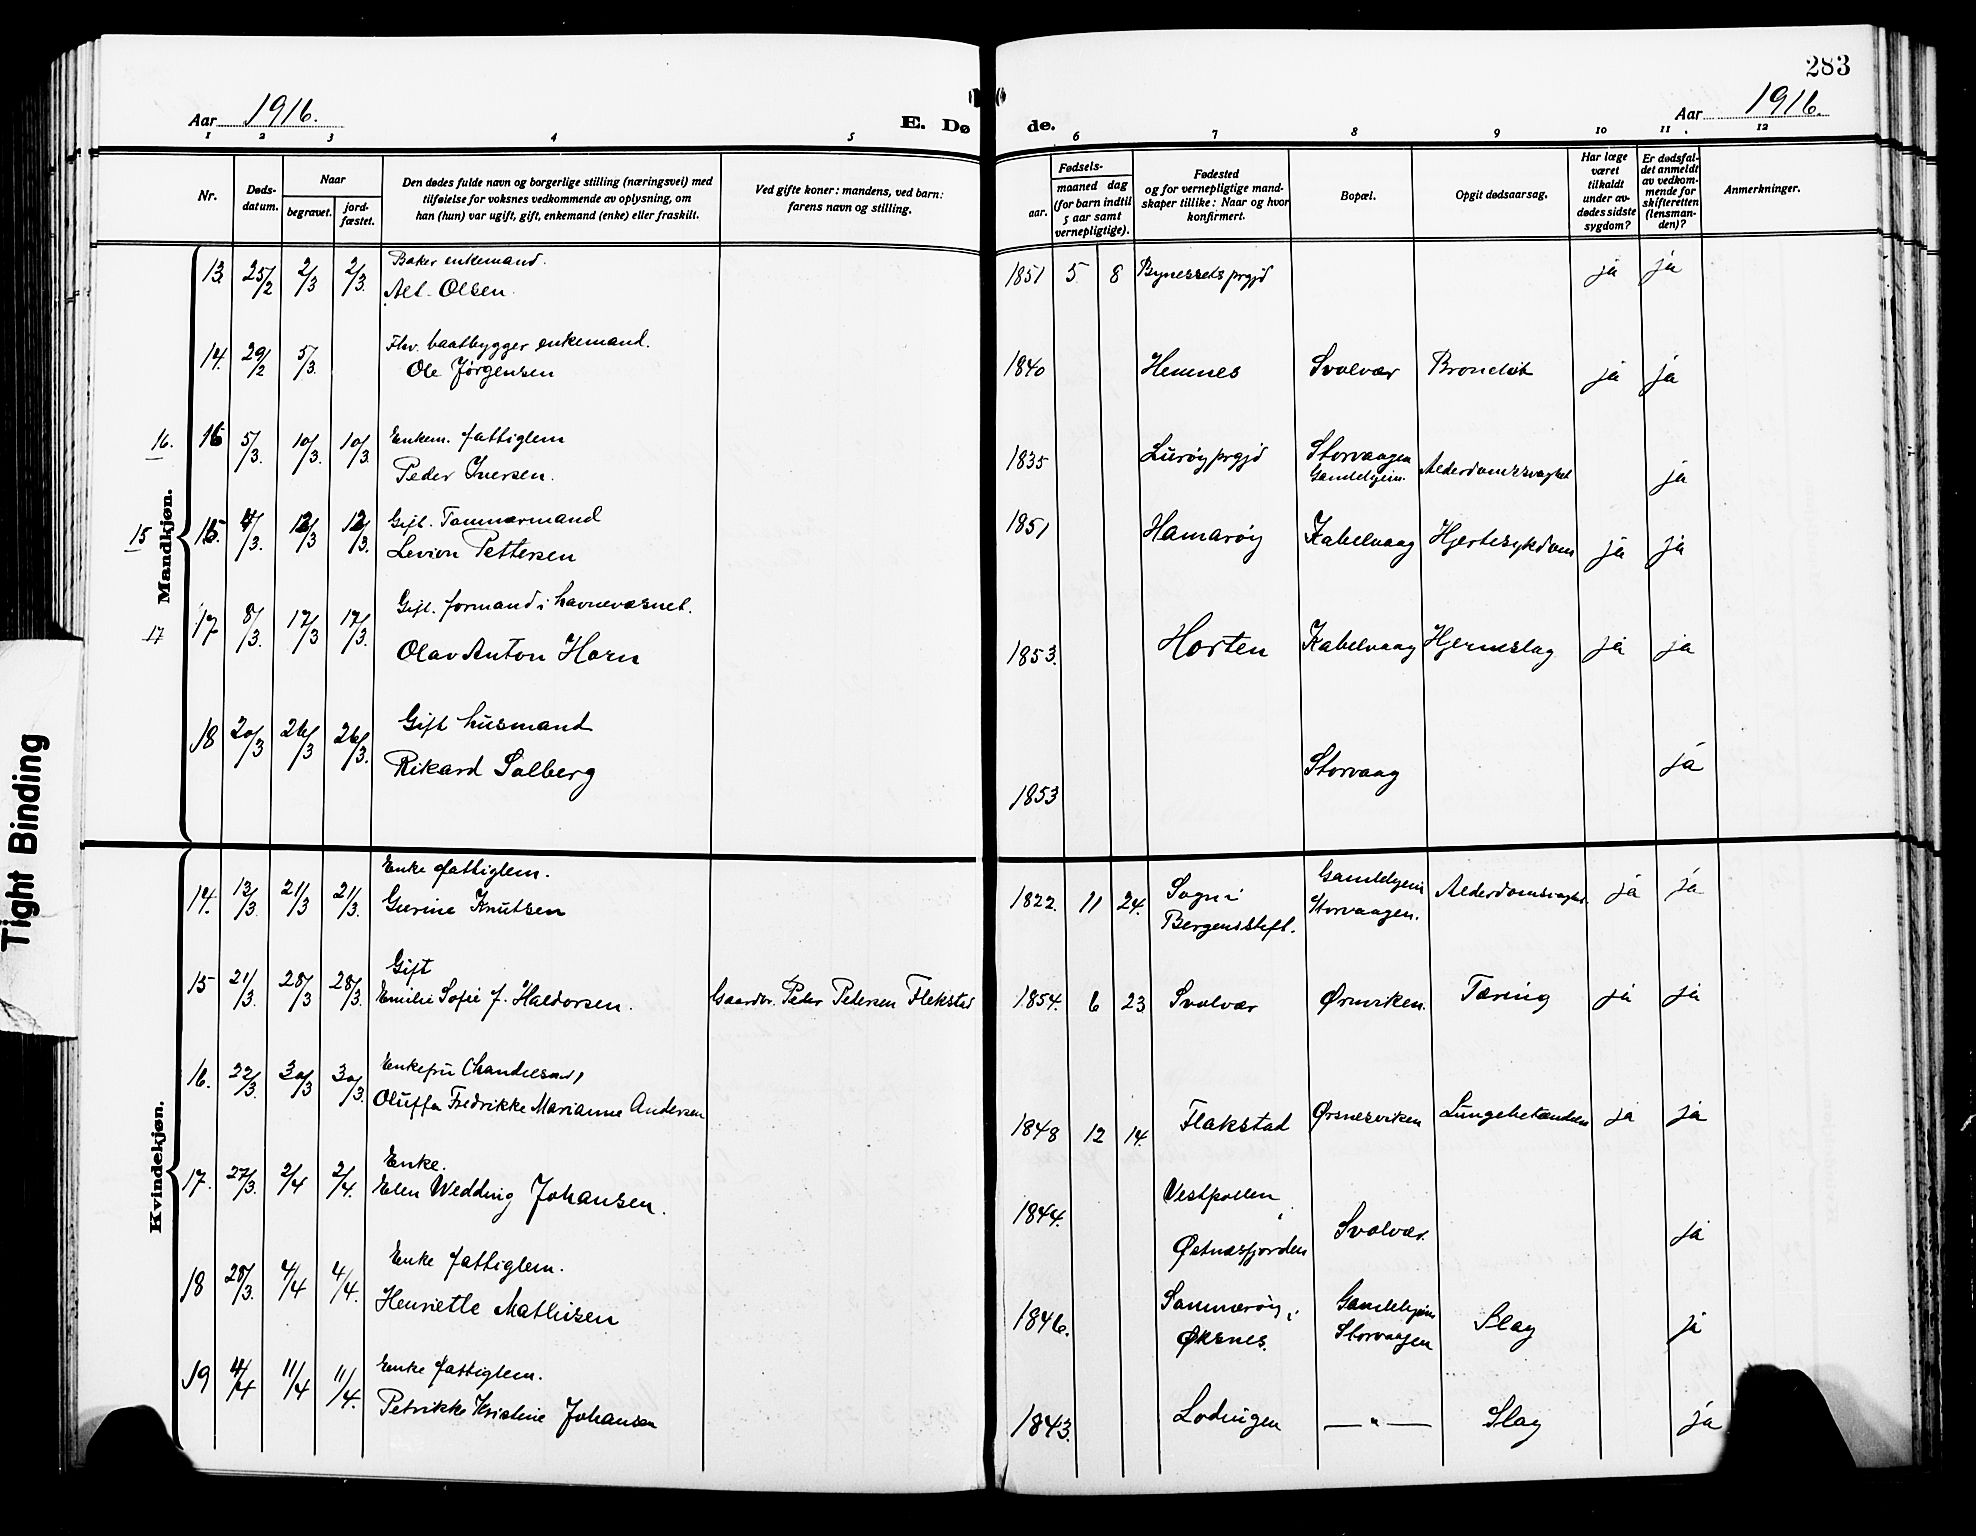 283
Aar 1916.
E. Dø de.
Aar 1916.
1 2 3 4 5 6 7 8 9 10 11 12
Nr.
Døds-
datum.
Naar
begravet.
jord-
fæstet.
Den dødes fulde navn og borgerlige stilling (næringsvei) med
tilføielse for voksnes vedkommende av oplysning, om
han (hun) var ugift, gift, enkemand (enke) eller fraskilt.
Ved gifte koner: mandens, ved barn:
farens navn og stilling.
Fødsels-
aar.
maaned dag
(for barn indtil
5 aar samt
vernepligtige).
Fødested
og for vernepligtige mand-
skaper tillike: Naar og hvor
konfirmert.
Bopæl.
Opgit dødsaarsag.
Har læge
været
tilkaldt
under av-
dødes sidste
sygdom?
Er dødsfal-
det anmeldt
av vedkom-
mende for
skifteretten
(lensman-
den)?
Anmerkninger.
Mandkjøn.
Baker enkemand.
13. 25/2 2/3 2/3. Alb. Olsen. 1851 5 8 Bynessets prgjd ja ja
Fhv. baatbygger enkemand.
14. 29/2 5/3. Ole Jørgensen 1840 Hemnes Svolvær Bronchit ja ja
Enkem. fattiglem
16. 16 5/3. 10/3. 10/3. Peder Iversen. 1835 Lurøy prgjd Storvaagen
Gamlehjem. Alderdomssvaghet ja
Gift. Tømmermand
15 15. 4/3. 12/3 12/3. Levion Pettersen 1851 Hamarøy Kabelvaag Hjertesykdom ja ja
Gift. formand i havnevæsnet.
17 17 8/3. 17/3 17/3. Olav Anton Horn 1853. Horten Kabelvaag Hjerneslag ja ja
Gift husmand
18 20/3 26/3 26/3. Rikard Solberg 1853 Storvaag ja
Kvindekjøn.
Enke fattiglem.
14. 13/3. 21/3 21/3. Gurine Knutsen 1822. 11 24. Sogn i
Bergens stift. Gamlehjem
Storvaagen. Alderdomssvaghet ja ja
Gift
15 21/3. 28/3 28/3. Emilie Sofie f. Haldorsen. Gaardbr. Peder Pedersen Flakstad 1854. 6 23 Svolvær Ørnviken. Tæring ja ja
Enkefru
16. 22/3. 30/3 30/3. Oluffa Fredrikke Marianne Andersen 1848 12 14. Flakstad Ørsnesviken Lungebetændelse ja ja
Enke.
17. 27/3. 2/4 2/4. Elen Wedding Johansen. 1844. Vestpollen
Østnæsfjorden Svolvær. ja
Enke fattiglem.
18 28/3. 4/4 4/4. Henriette Mathisen 1846. Sommerøy i
Øksnes. Gamlehjem
Storvaagen Slag ja
Enke fattiglem.
19 4/4 11/4 11/4. Petrikke Kristine Johansen 1843. Lodingen —"— Slag ja
Tight Binding